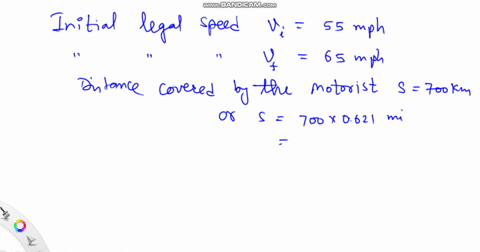 WWW.BANDICAM.COM
Initial legal speed Vi = 55 mph
" " " Vf = 65 mph
Distance covered by the motorist S = 700 km
or S = 700 x 0.621 mi
=